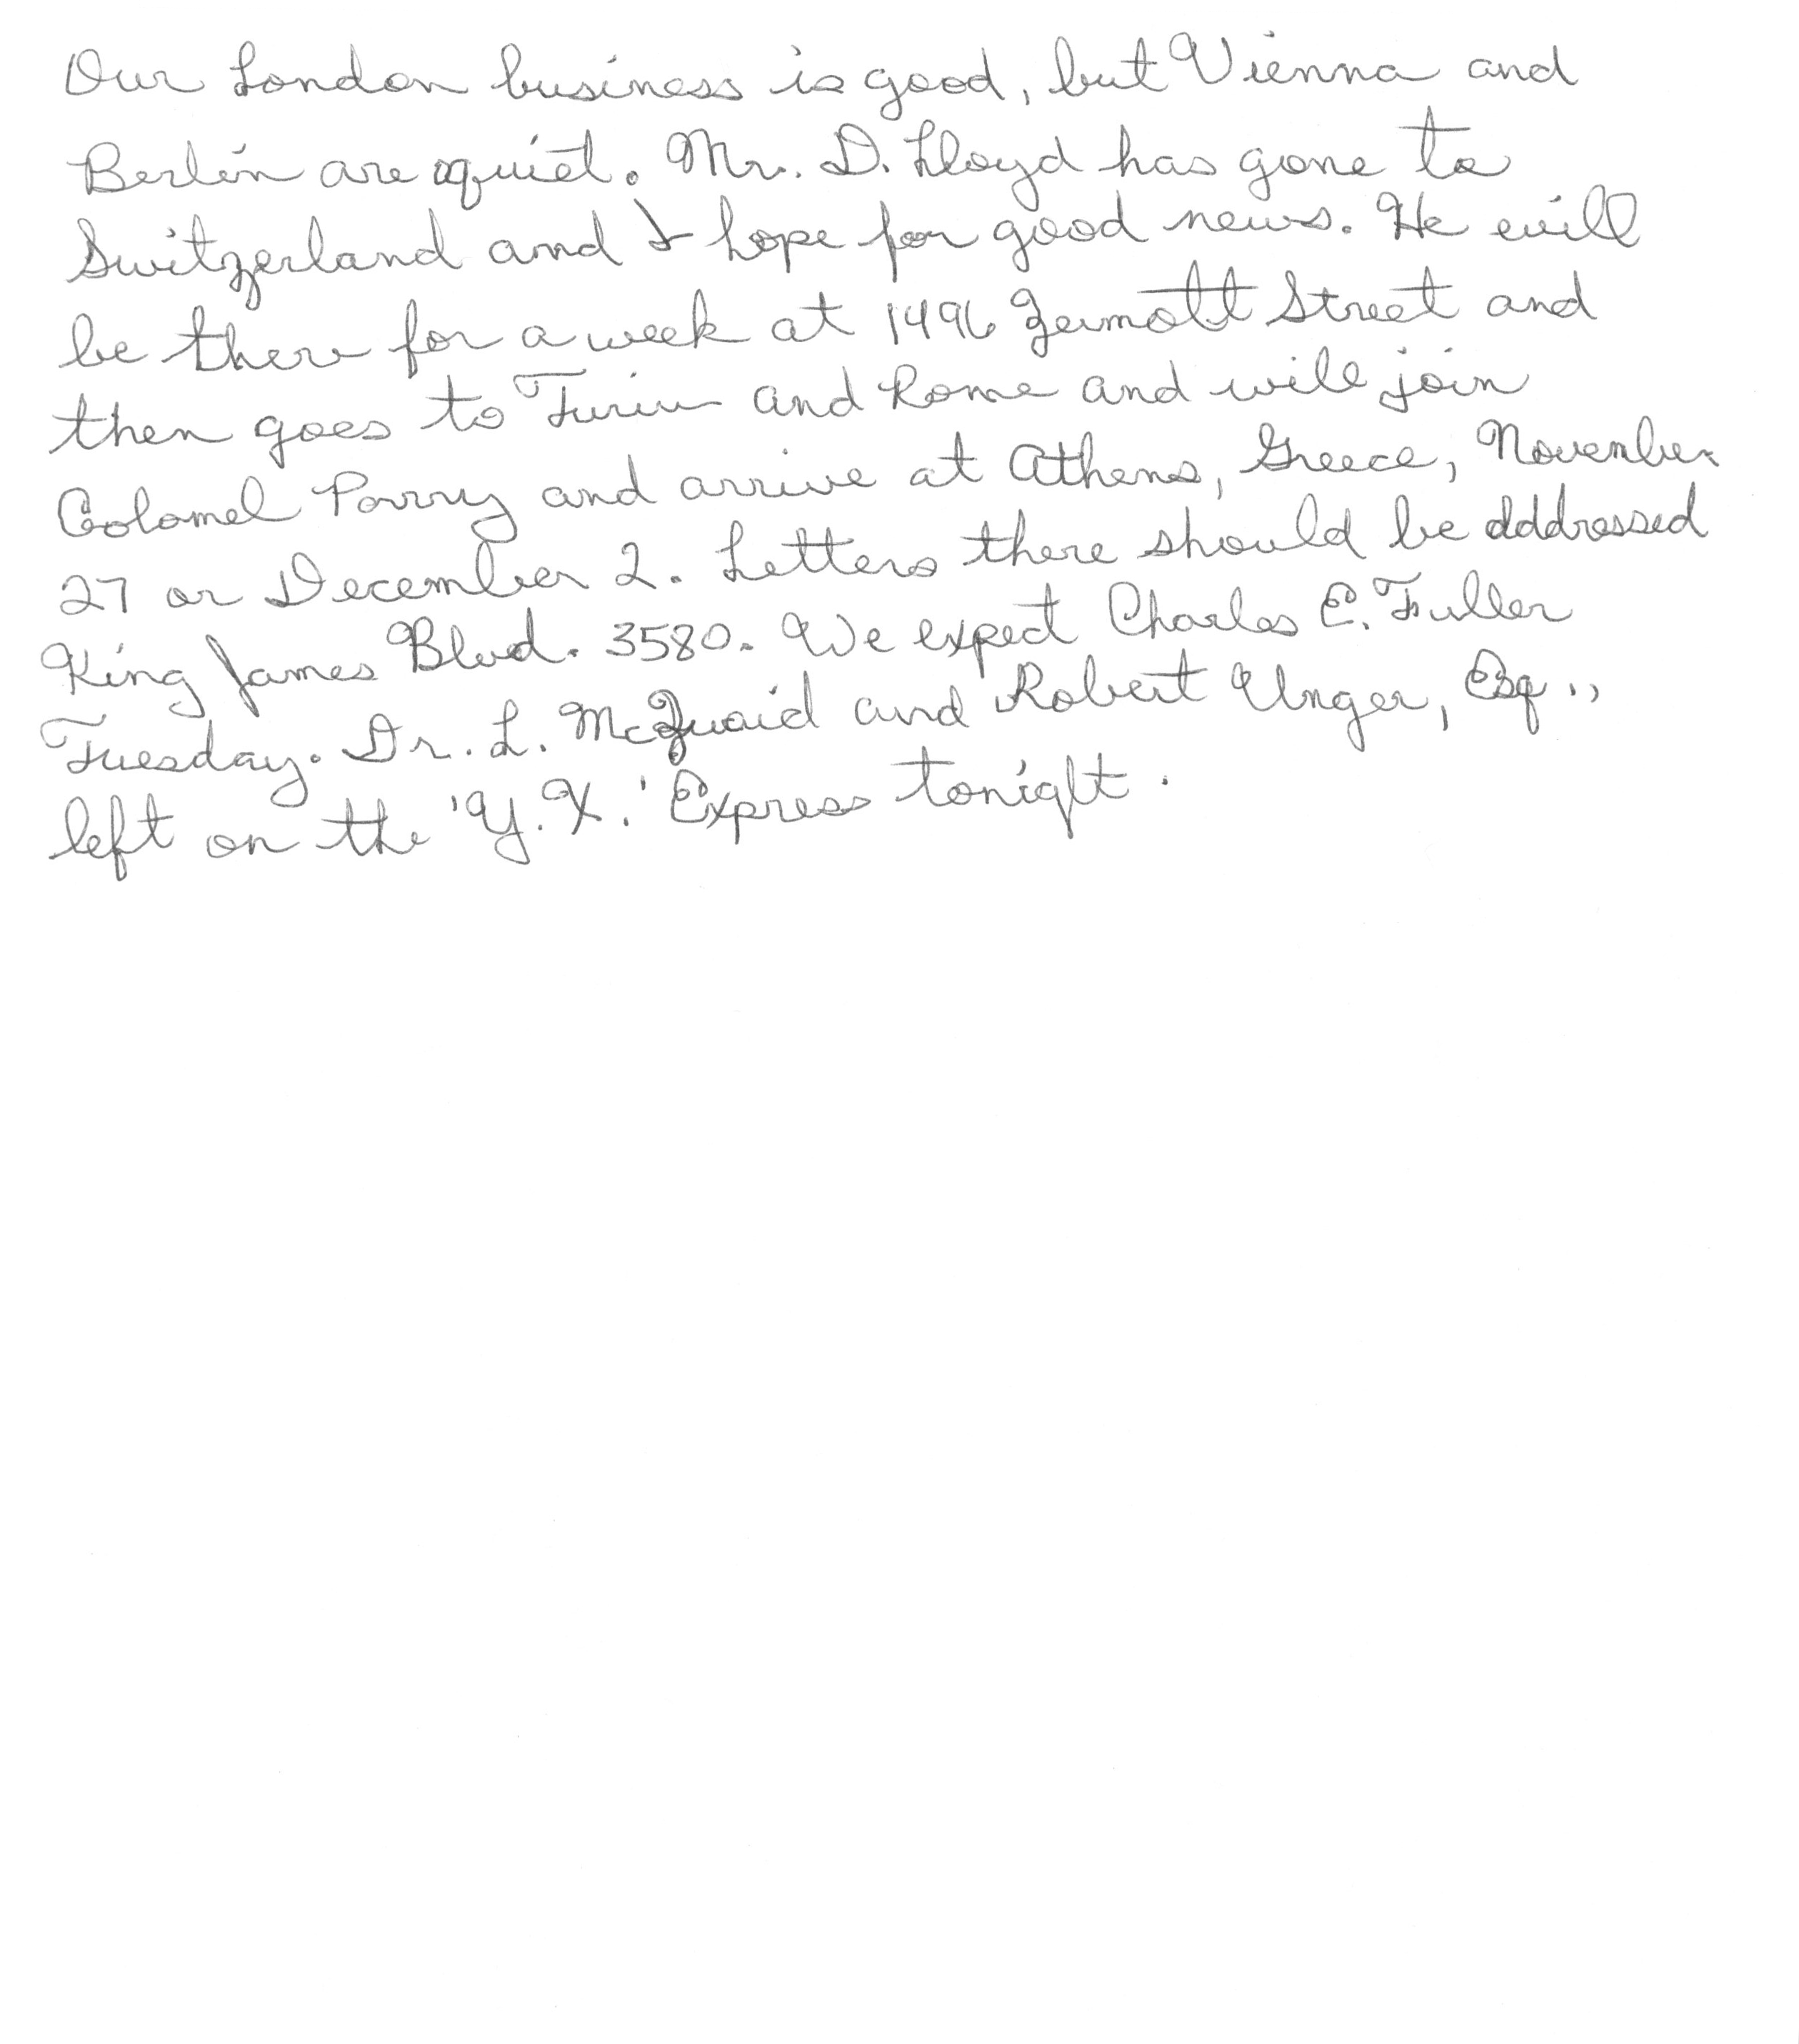 Our London business is good, but Vienna and
Berlin are quiet. Mr. D. Lloyd has gone to
Switzerland and I hope for good news. He will
be there for a week at 1496 Zermott Street and
then goes to Turin and Rome and will join
Colonel Parry and arrive at Athens, Greece, November
27 or December 2. Letters there should be adddressed
King James Blvd. 3580. We expect Charles E. Fuller
Tuesday. Dr. L. McQuaid and Robert Unger, Esq.,
left on the 'Y.X.' Express tonight.